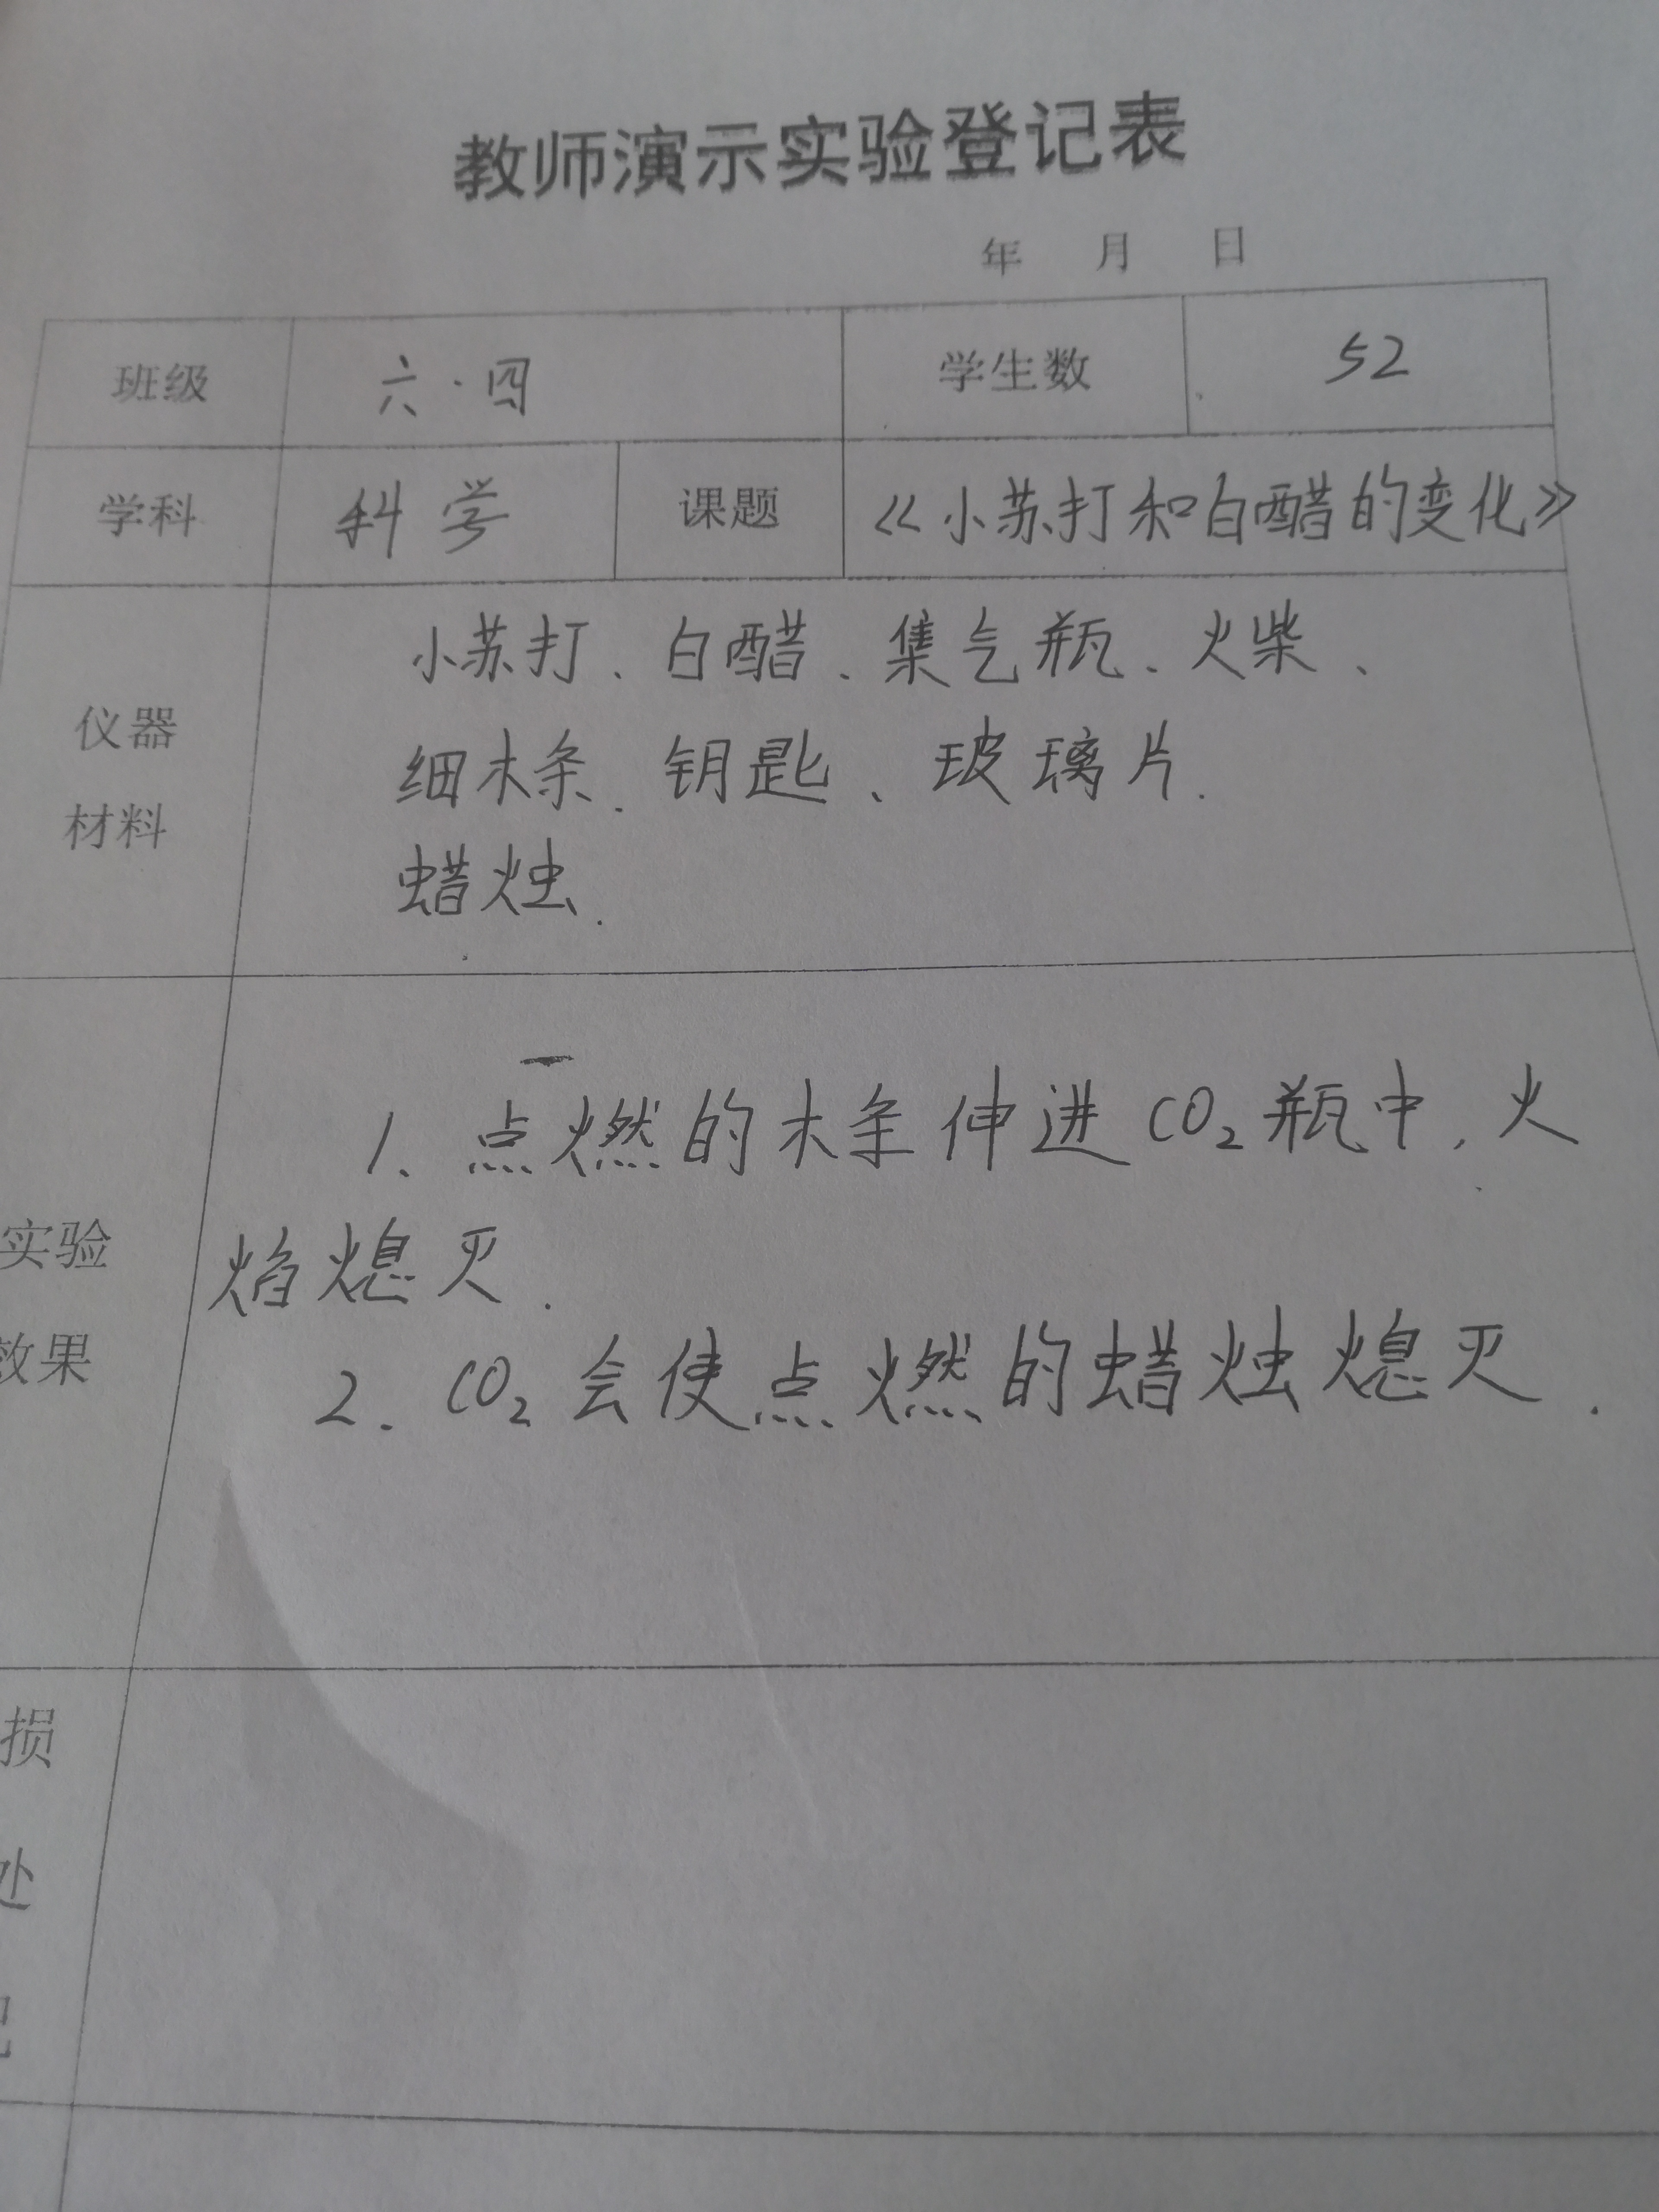 教师演示实验登记表
年 月 日
班级 六·四 学生数 52
学科 科学 课题 《小苏打和白醋的变化》
仪器
材料
小苏打、白醋、集气瓶、火柴、
细木条、钥匙、玻璃片.
蜡烛.
实验
效果
1、点燃的木条伸进CO₂瓶中,火
焰熄灭.
2. CO₂会使点燃的蜡烛熄灭.
损
处